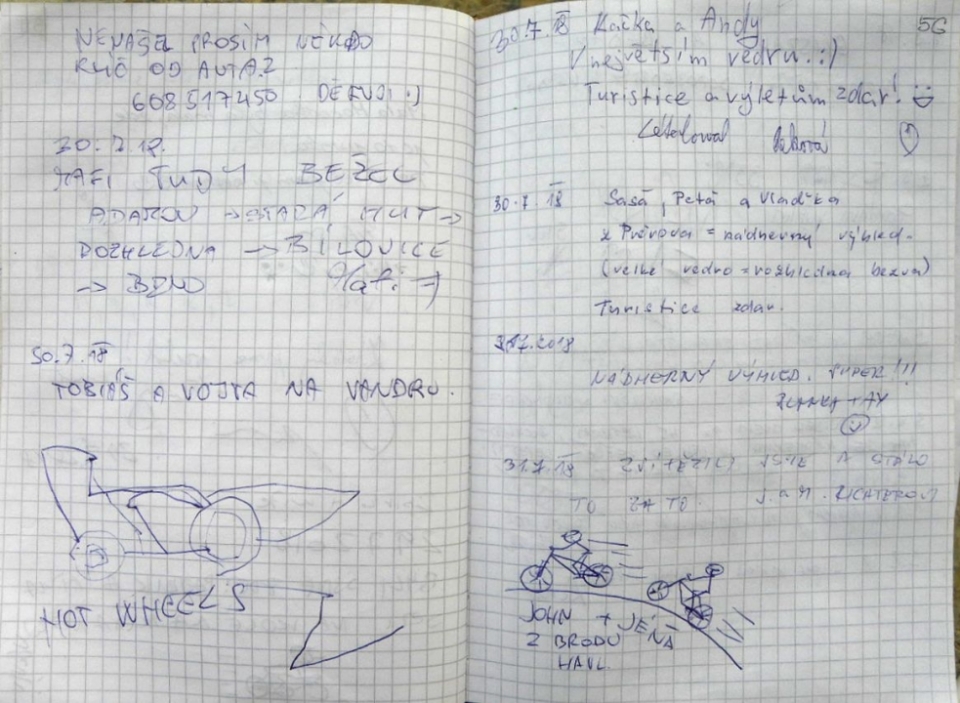 NENAŠEL PROSÍM NĚKDO
KLÍČ OD AUTA?
608517450 DĚKUJI :)
30.7.18.
TUDY BĚŽEL
ADAMOV → STARÁ HUŤ →
ROZHLEDNA → BÍLOVICE
→ BRNO
30.7.18
TOBIÁŠ A VOJTA NA VANDRU.
HOT WHEELS
56
30.7.18 Kačka a Andy
V největším vedru :)
Turistice a výletům zdar!
30.7.18 Saša, Peťa a Vlaďka
z Přerova = nádherný výhled.
(velké vedro = rozhledna bezva)
Turistice zdar.
31.7.2018
NÁDHERNÝ VÝHLED. SUPER!!!
31.7.18 ZVÍTĚZILI JSME A STÁLO
TO ZA TO. J. a M.
JOHN + JENA
Z BRODU
HAVL.